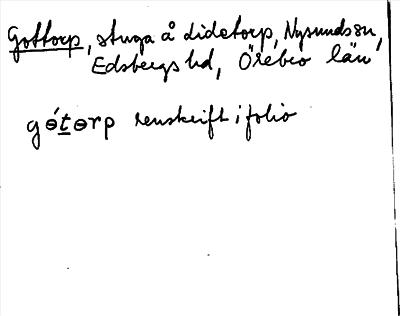 Gottorp, stuga å Didetorp, Nysunds sn,
Edsbergs hd, Örebro län
gɵ́tɵrp renskrift i folio